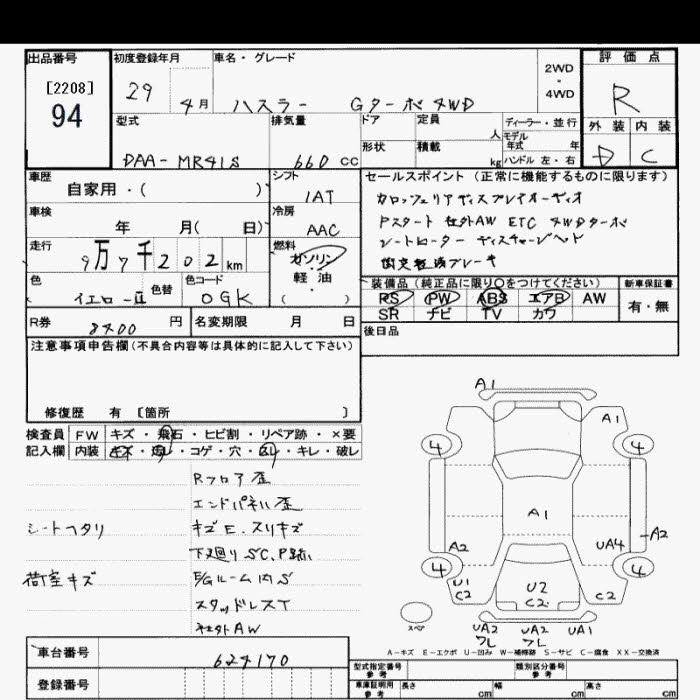 出品番号
[2208]
94
初度登録年月
29 4月
車名・グレード
ハスラー Gターボ4WD
2WD
・
4WD
評価点
R
外装 内装
D C
型式
DAA-MR41S
排気量
660 CC
ドア
形状
定員 人
積載 kg
ディーラー・並行
モデル
年式 年
ハンドル 左・右
車歴
自家用・( )
シフト
IAT
車検
年 月( 日)
冷房
AAC
走行
9万7千202km
燃料
ガソリン
・
軽油
( )
色
イエローII
色替
色コード
OGK
R券
8400 円
名変期限 月 日
セールスポイント(正常に機能するものに限ります)
カロッツェリアディスプレイオーディオ
Pスタート 社外AW ETC 4WDターボ
シートヒーター ディスチャージヘッド
衝突軽減ブレーキ
装備品(純正品に限り○をつけてください)
PS PW ABS エアB AW
SR ナビ TV カワ
新車保証書
有・無
後日品
注意事項申告欄(不具合内容等は具体的に記入して下さい)
修復歴 有 〔箇所 〕
検査員
記入欄
FW キズ・飛石・ヒビ割・リペア跡・×要
内装 キズ・汚レ・コゲ・穴・スレ・キレ・破レ
Rフロア歪
エンドパネル歪
シートヘタリ
キズE.スリキズ
下廻りSC.P跡
荷室キズ
E/GルームINS
スタッドレスT
社外AW
車台番号
624170
登録番号
A1
A1
4
4
A1
A2
A2
UA4
4
4
U1
C2
U2
C2
C2
スペア
UA2
フレ
UA2
フレ
UA1
A-キズ E-エクボ U-凹み W-補修跡 S-サビ C-腐食 XX-交換済
型式指定番号
参考
類別区分番号
参考
車庫証明用
参考
長さ cm
幅 cm
高さ cm